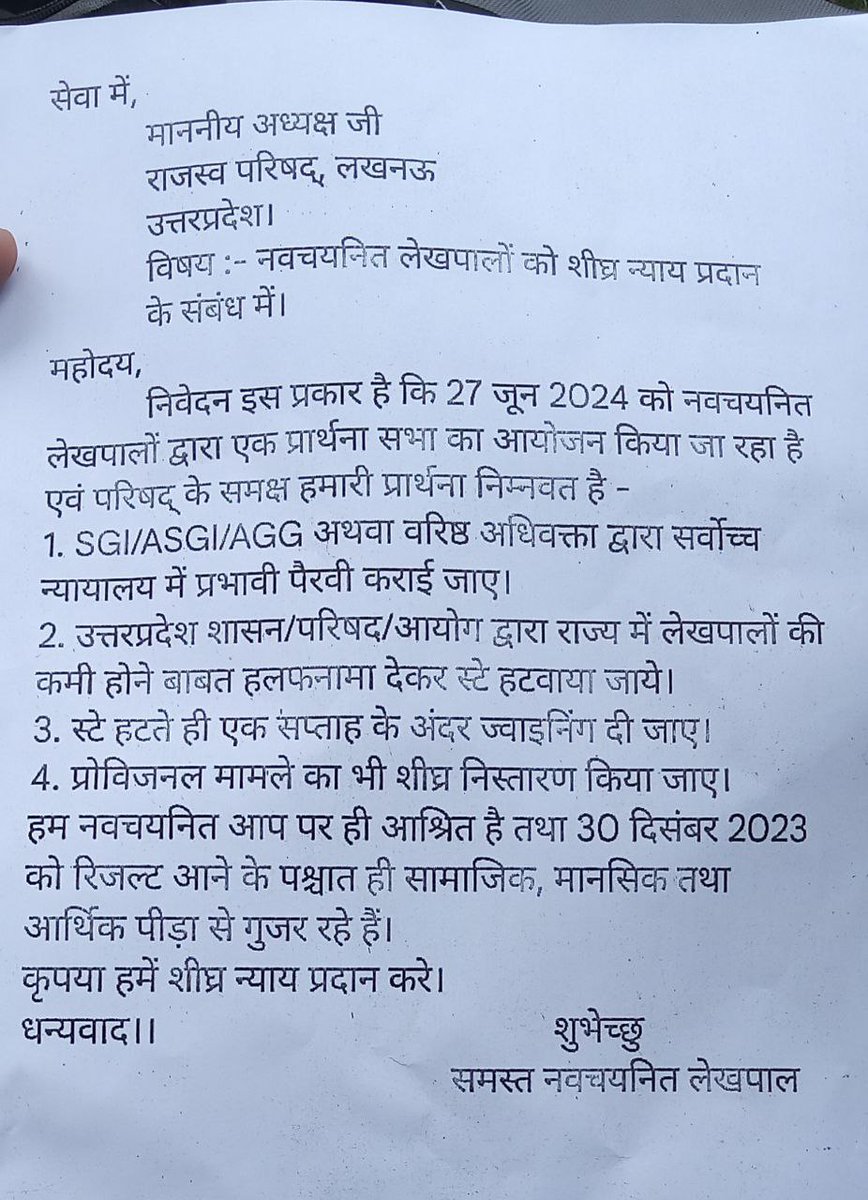 सेवा में,
माननीय अध्यक्ष जी
राजस्व परिषद्, लखनऊ
उत्तरप्रदेश।
विषय :- नवचयनित लेखपालों को शीघ्र न्याय प्रदान
के संबंध में।
महोदय,
निवेदन इस प्रकार है कि 27 जून 2024 को नवचयनित
लेखपालों द्वारा एक प्रार्थना सभा का आयोजन किया जा रहा है
एवं परिषद् के समक्ष हमारी प्रार्थना निम्नवत है -
1. SGI/ASGI/AGG अथवा वरिष्ठ अधिवक्ता द्वारा सर्वोच्च
न्यायालय में प्रभावी पैरवी कराई जाए।
2. उत्तरप्रदेश शासन/परिषद/आयोग द्वारा राज्य में लेखपालों की
कमी होने बाबत हलफनामा देकर स्टे हटवाया जाये।
3. स्टे हटते ही एक सप्ताह के अंदर ज्वाइनिंग दी जाए।
4. प्रोविजनल मामले का भी शीघ्र निस्तारण किया जाए।
हम नवचयनित आप पर ही आश्रित है तथा 30 दिसंबर 2023
को रिजल्ट आने के पश्चात ही सामाजिक, मानसिक तथा
आर्थिक पीड़ा से गुजर रहे हैं।
कृपया हमें शीघ्र न्याय प्रदान करे।
धन्यवाद।।
शुभेच्छु
समस्त नवचयनित लेखपाल